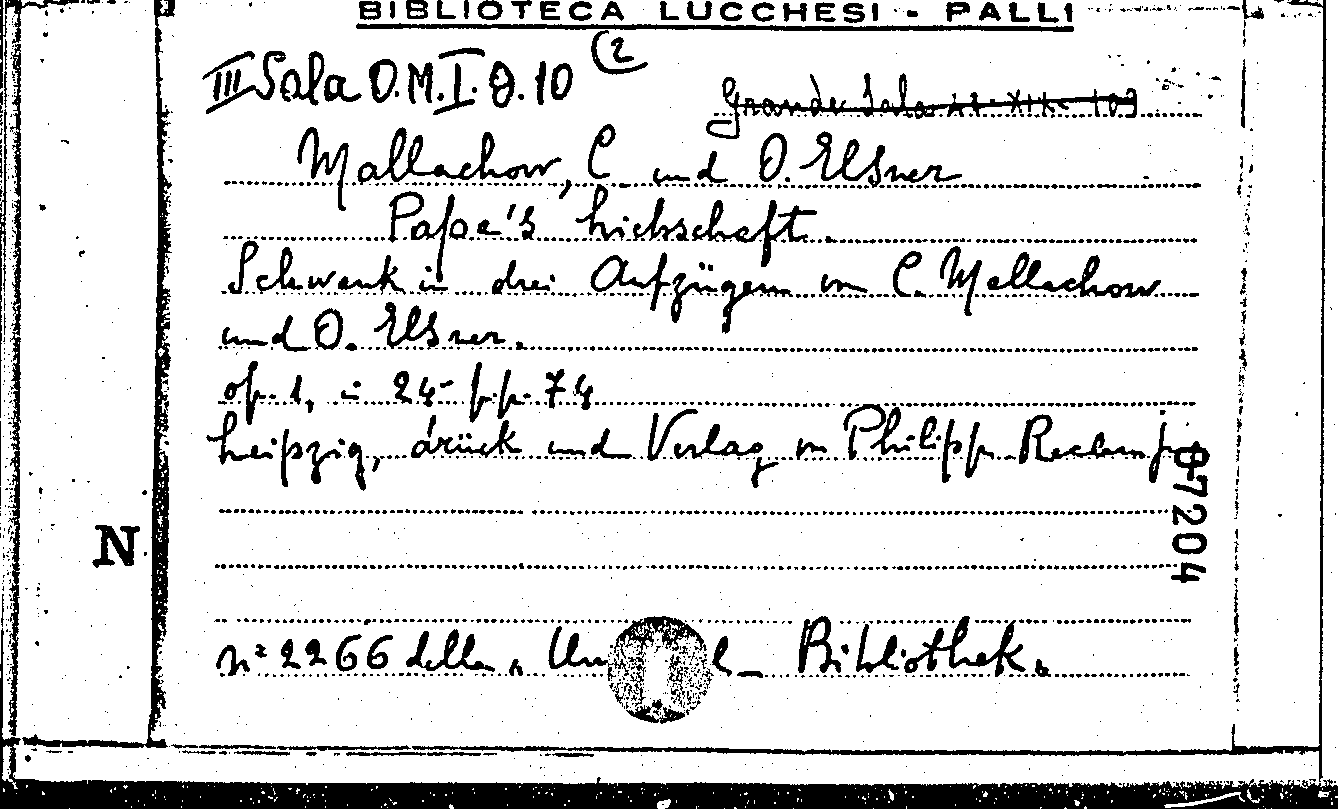 BIBLIOTECA LUCCHESI - PALLI
III Sala O.M.I.O.10 (2
Grande Sala XIX 103
Mallachow, C. und O. Elsner
Papa's Liebschaft.
Schwank in drei Aufzügen von C. Mallachow
und O. Elsner.
op. 1, in 24- pp. 74
Leipzig, drück und Verlag von Philipp Reclam j.
07204
N
nº 2266 della „ Un l_ Bibliothek „